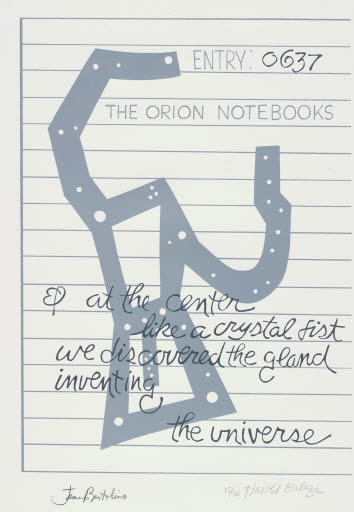 ENTRY: 0637
THE ORION NOTEBOOKS
& at the center
like a crystal fist
we discovered the gland
inventing
the universe
James Bertolino
Harold Balazs